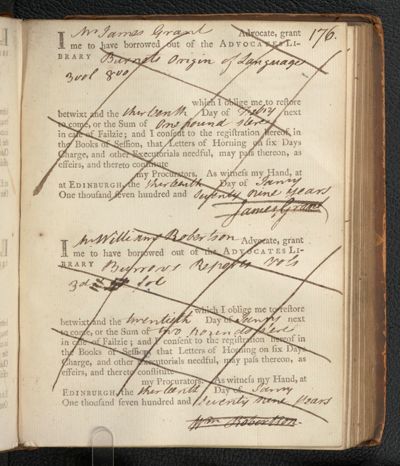 176.
I Mr James Grant Advocate, grant
me to have borrowed out of the ADVOCATES LI-
BRARY Burnets Origin of Language
3 vol 8vo
which I oblige me to restore
betwixt and the thirteenth Day of Febry next
to come, or the Sum of One pound
in case of Failzie; and I consent to the registration hereof, in
the Books of Session, that Letters of Horning on six Days
Charge, and other Executorials needful, may pass thereon, as
effeirs, and thereto constitute
my Procurators. As witness my Hand, at
at EDINBURGH, the thirteenth Day of Janry
One thousand seven hundred and seventy nine years
James Grant
I Mr William Robertson Advocate, grant
me to have borrowed out of the ADVOCATES LI-
BRARY Burrows Reports Vols
3d & fol
which I oblige me to restore
betwixt and the twentieth Day of Janry next
to come, or the Sum of two pounds
in case of Failzie; and I consent to the registration hereof in
the Books of Session, that Letters of Horning on six Days
Charge, and other Executorials needful, may pass thereon, as
effeirs, and thereto constitute
my Procurators. As witness my Hand, at
EDINBURGH, the thirteenth Day of Janry
One thousand seven hundred and seventy nine years
Wm Robertson